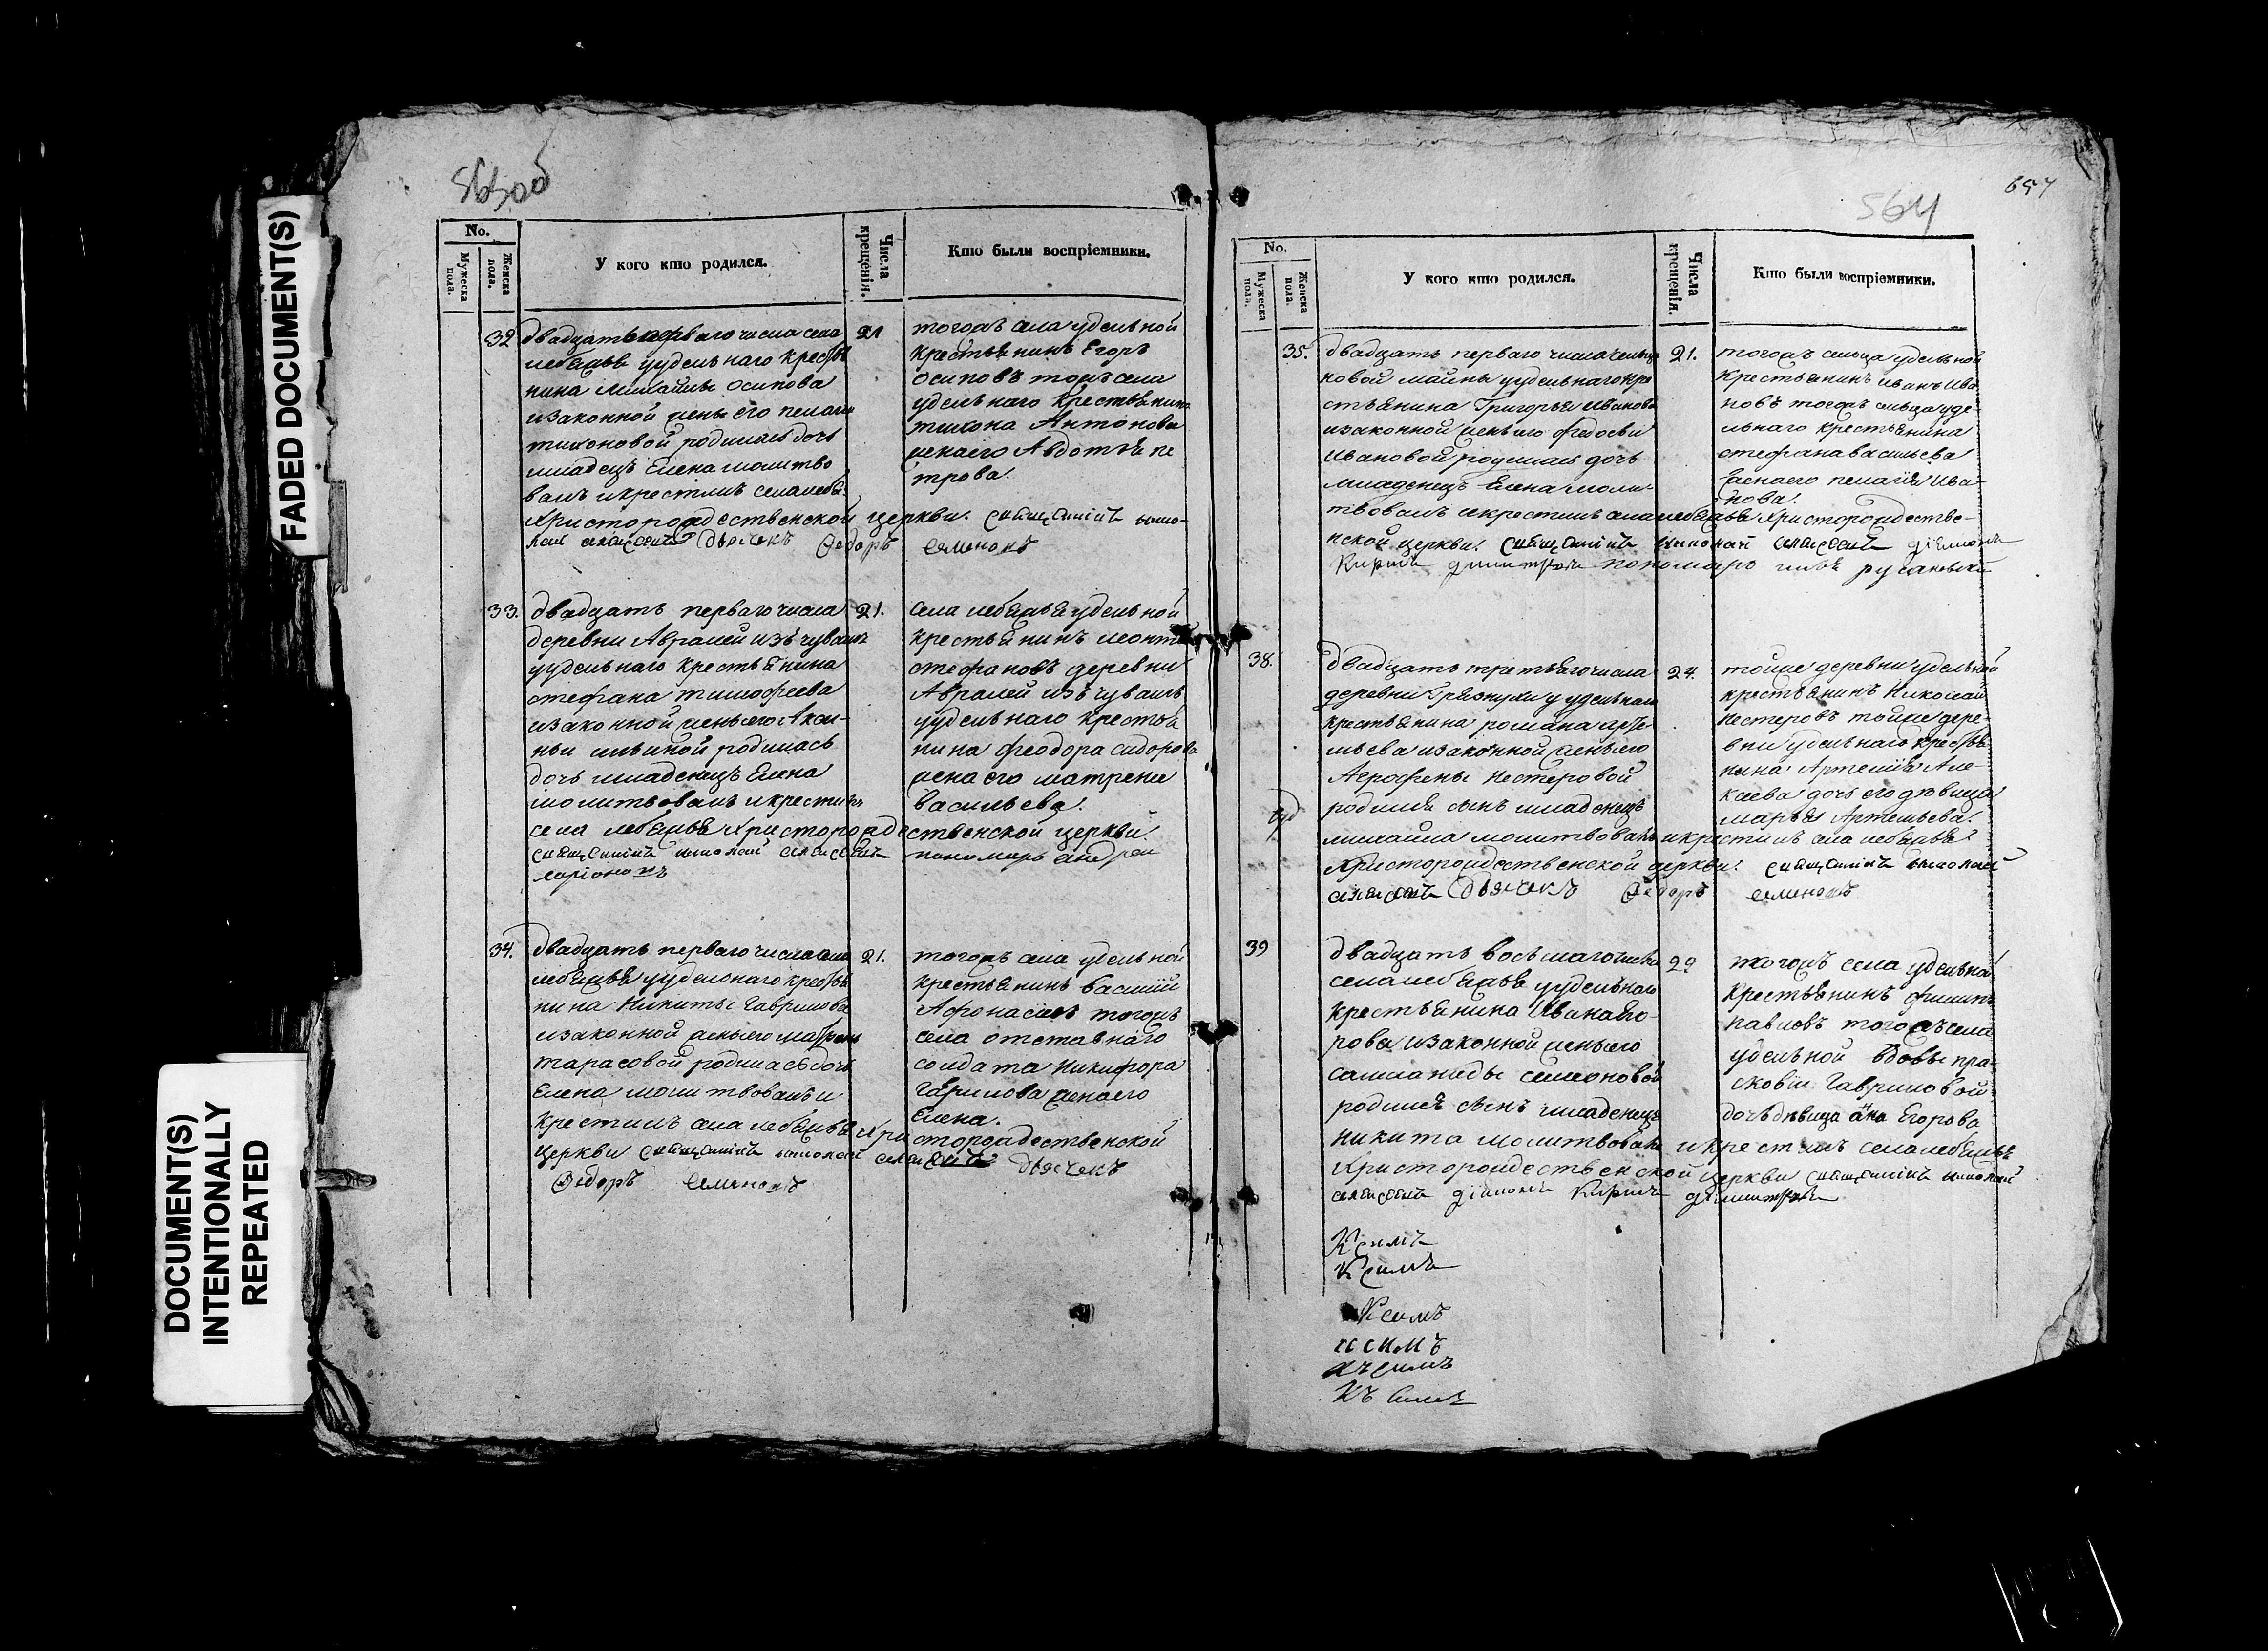 FADED DOCUMENT(S)
DOCUMENT(S)
INTENTIONALLY
REPEATED
563об
No.
Мужеска пола.
Женска пола.
У кого кто родился.
Числа крещенія.
Кто были воспріемники.
32
двадцать перваго числа села
лебяжья у удельнаго крестья
нина Михайлы Осипова
изаконной жены его пелагеи
тихоновой родилась дочь
младенецъ Елена молитво
валъ и крестилъ села лебя:
Христорождественской церкви. священникъ нико-
лай алексеевъ дьячекъ Федоръ Семеновъ
21
тогожъ села удельной
крестьянинъ Егоръ
Осиповъ тогожъ села
удельнаго крестьянина
тихона Антонова
жена его Авдотья пе
трова.
33.
двадцать перваго числа
деревни Авралей изъ чувашъ
у удельнаго крестьянина
стефана тимофеева
изаконной жены его Акси-
ньи ильиной родилась
дочь младенецъ Елена
молитвовалъ и крестилъ
села лебяжья Христорождественской церкви.
священникъ николай алексеевъ пономарь андрей
ларіоновъ
21.
села лебяжья удельной
крестьянинъ леонтей
стефановъ деревни
Авралей изъ чувашъ
у удельнаго крестья
нина феодора сидорова
жена его матрена
васильева.
34.
двадцать перваго числа села
лебяжья у удельнаго крестья
нина Никиты Гаврилова
изаконной жены его матрены
тарасовой родилась дочь
Елена молитвовалъ и
крестилъ села лебяжья Христорождественской
церкви священникъ николай алексеевъ дьячекъ
Федоръ Семеновъ
21.
тогожъ села удельной
крестьянинъ василій
Афонасіевъ тогожъ
села отставнаго
солдата никифора
Гаврилова жена его
Елена.
564
657
No.
Мужеска пола.
Женска пола.
У кого кто родился.
Числа крещенія.
Кто были воспріемники.
35.
двадцать перваго числа сельца
новой майны у удельнаго кре
стьянина Григорья Иванова
изаконной жены его федосьи
Ивановой родилась дочь
младенецъ Елена моли-
твовалъ и крестилъ села лебяжья Христорождестве-
нской церкви. священникъ николай алексеевъ діаконъ
Кирилъ димитріевъ пономарь русановскій
21.
тогожъ сельца удельной
крестьянинъ иванъ Ива
новъ тогожъ сельца уде-
льнаго крестьянина
стефана васильева
жена его пелагія Ива-
нова.
38.
двадцать третьяго числа
деревни Грязнухи у удельнаго
крестьянина романа арте-
мьева изаконной жены его
Агрофены Нестеровой
родился сынъ младенецъ
михайла молитвовалъ и крестилъ села лебяжья
Христорождественской церкви. священникъ николай
алексеевъ дьячекъ Федоръ Семеновъ
24.
тойже деревни удельной
крестьянинъ Николай
нестеровъ тойже дере-
вни удельнаго крестья
нина Артемія Але-
каева дочь его девица
марья Артемьева.
39
двадцать восьмаго числа
села лебяжья у удельнаго
крестьянина Ивана Его-
рова изаконной жены его
саломаниды семеновой
родился сынъ младенецъ
никита молитвовалъ и крестилъ села лебяжья
Христорождественской церкви священникъ николай
алексеевъ діаконъ Кирилъ димитріевъ
29
тогожъ села удельной
крестьянинъ филипъ
павловъ тогожъ села
удельной вдовы пра-
сковіи Гавриловой
дочь девица анна Егорова
К симъ
К симъ
К симъ
К симъ
Къ симъ
Къ симъ